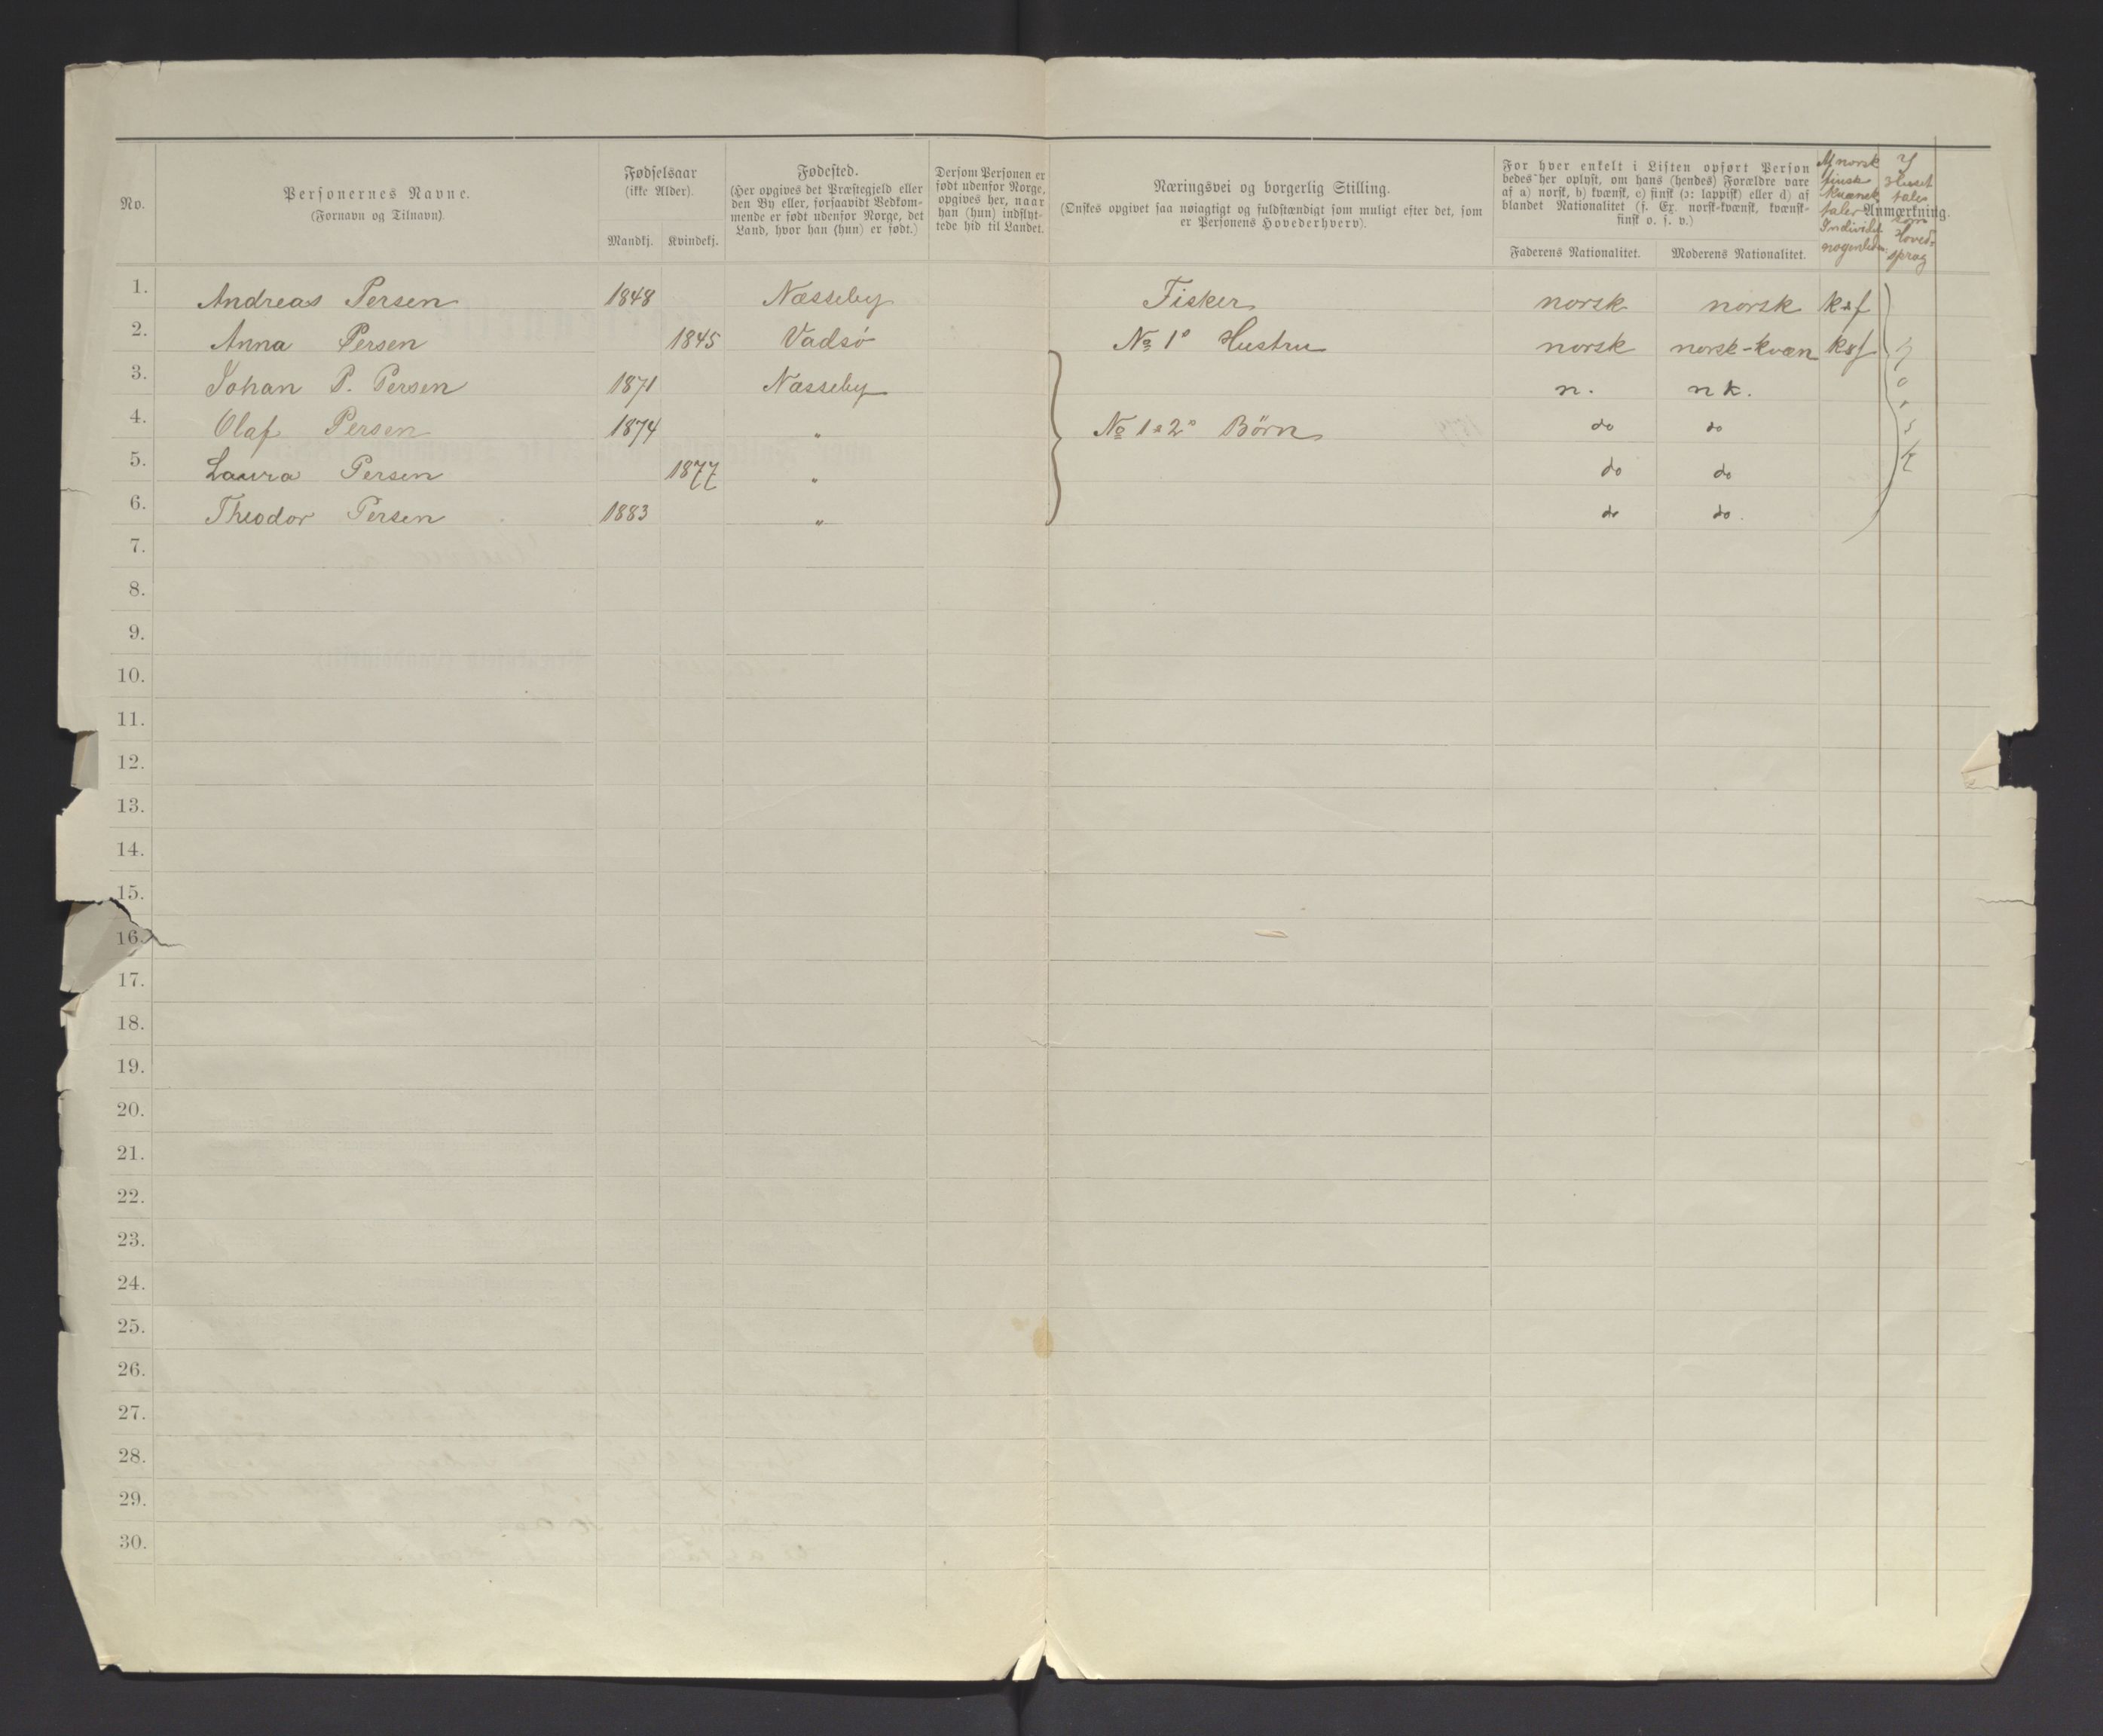 No.
Personernes Navne.
(Fornavn og Tilnavn).
Fødselsaar
(ikke Alder).
Mandkj. Kvindekj.
Fødested.
(Her opgives det Præstegjeld eller
den By eller, forsaavidt Vedkom-
mende er født udenfor Norge, det
Land, hvor han (hun) er født.)
Dersom Personen er
født udenfor Norge,
opgives her, naar
han (hun) indflyt-
tede hid til Landet.
Næringsvei og borgerlig Stilling.
(Ønskes opgivet saa nøiagtigt og fuldstændigt som muligt efter det, som
er Personens Hovederhverv).
For hver enkelt i Listen opført Person
bedes her oplyst, om hans (hendes) Forældre vare
af a) norsk, b) kvænsk, c) finsk (ɔ: lappisk) eller d) af
blandet Nationalitet (f. Ex. norsk-kvænsk, kvænsk-
finsk o. s. v.)
Faderens Nationalitet. Moderens Nationalitet.
Anmærkning.
Af norsk
finsk
Kvænsk
taler
Individet
nogenledes:
I
Huset
tales
som
Hoved-
sprog
1. Andreas Persen 1848 Næsseby Fisker norsk norsk k & f
2. Anna Persen 1845 Vadsø No 1s Hustru norsk norsk-kvæn k & f
3. Johan P. Persen 1871 Næsseby n. n k.
4. Olaf Persen 1874 " No 1 & 2s Börn do do
5. Laura Persen 1877 " do do
6. Theodor Persen 1883 " do do.
norsk
7.
8.
9.
10.
11.
12.
13.
14.
15.
16.
17.
18.
19.
20.
21.
22.
23.
24.
25.
26.
27.
28.
29.
30.